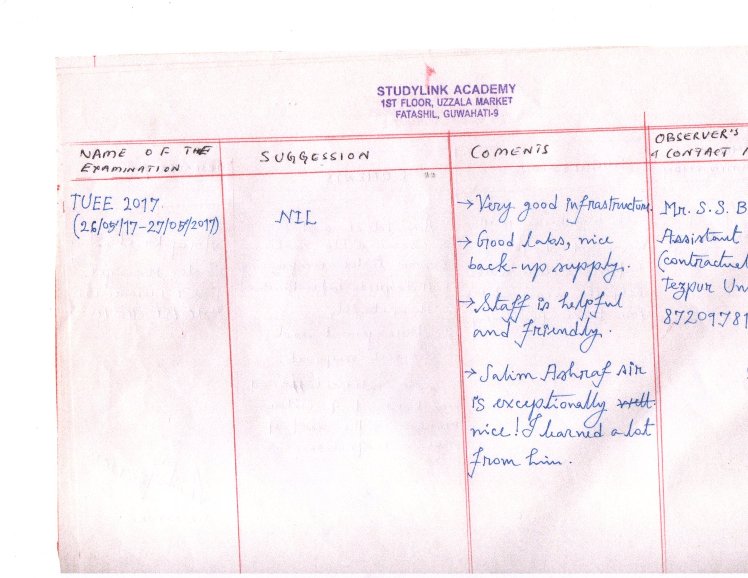 STUDYLINK ACADEMY
1ST FLOOR, UZZALA MARKET
FATASHIL, GUWAHATI-9
NAME OF THE
EXAMINATION
SUGGESSION
COMENTS
OBSERVER'S
& CONTACT
TUEE 2017.
(26/05/17-27/05/2017)
NIL
→ Very good infrastructure.
→ Good labs, nice
back-up supply.
→ Staff is helpful
and friendly.
→ Salim Ashraf sir
is exceptionally well
nice! I learned a lot
from him.
Mr. S.S. B
Assistant
(contractual
Tezpur Un
8720978